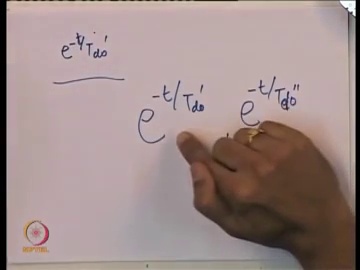 e^{-t/T_{do}'}
e^{-t/T_{do}'} e^{-t/T_{do}''}
NPTEL